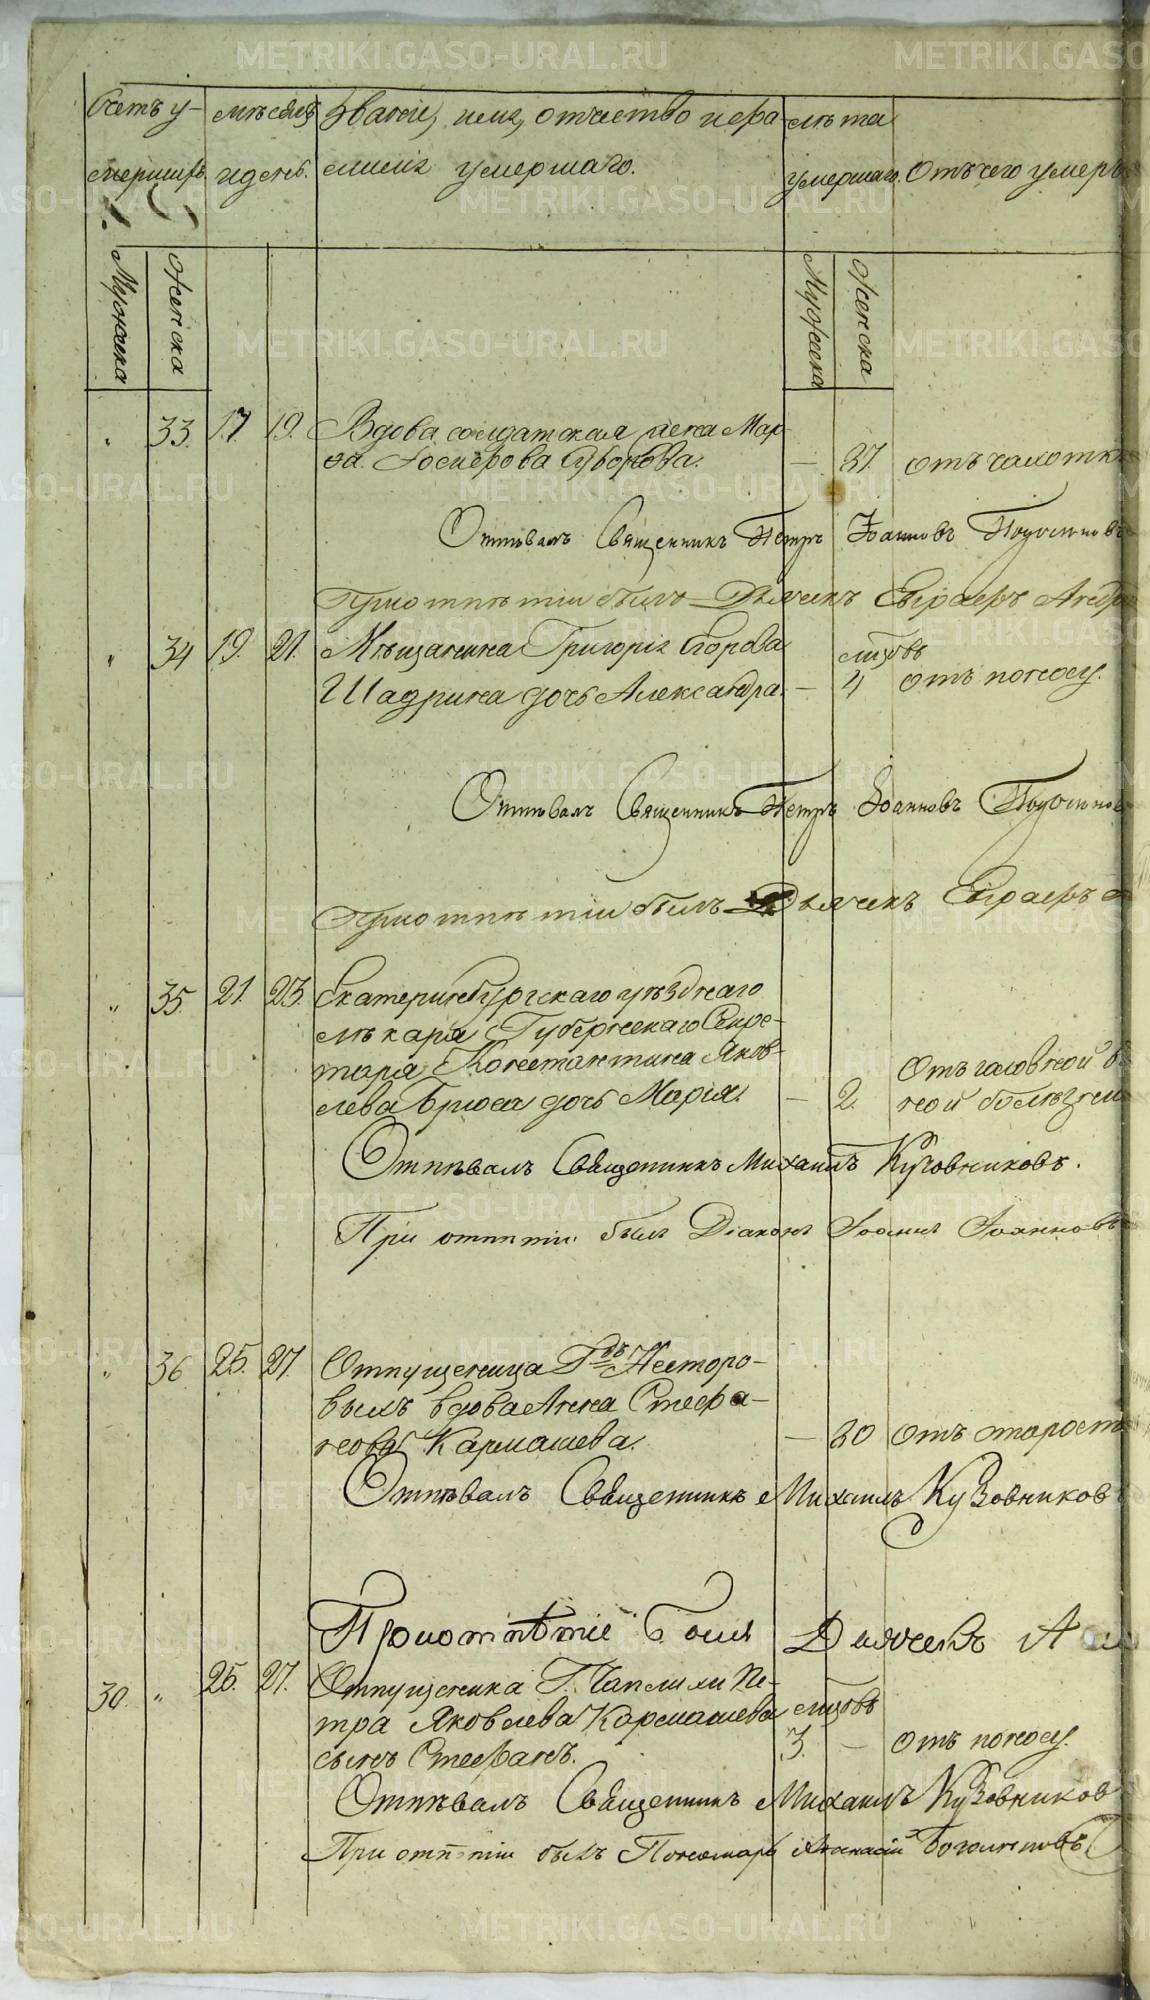 Счетъ у- мѣсяцъ Званіе, имя, отчество и фа- лѣта
мершихъ. и день. милія умершаго. умершаго. Отъ чего умеръ
Мужска Женска Мужска Женска
" 33. 17. 19. Вдова солдатская жена Мар-
ѳа Суворова. — 37. отъ чахотк
Отпѣвалъ Священникъ Петръ Іоанновъ
При отпѣтіи былъ Дьячекъ
" 34 19. 21. Мѣщанина Григорія Егорова мѣсцовъ
Шадрина дочь Александра. — 4 отъ поносу.
Отпѣвалъ Священникъ Петръ Іоанновъ
При отпѣтіи былъ Дьячекъ
" 35. 21. 23. Екатеринбургскаго уѣзднаго
лѣкаря Губернскаго Секре-
таря Константина Яков-
лева Брюса дочь Марія. — 2. Отъ головной
ной болѣзни
Отпѣвалъ Священникъ Михаилъ Кузовниковъ.
При отпѣтіи былъ Діаконъ Іоаннъ Іоанновъ
" 36 25. 27. Отпущеница Гдъ Несторо-
выхъ вдова Анна Стефа-
нова Кармашева. — 80 отъ старост
Отпѣвалъ Священникъ Михаилъ Кузовниковъ
При отпѣтіи былъ Дьячекъ
30. " 25. 27. Отпущеника Г. Пе-
тра Яковлева Кармашева мѣсцовъ
сынъ Стефанъ. 3. — отъ поносу.
Отпѣвалъ Священникъ Михаилъ Кузовников
При отпѣтіи былъ Пономарь Аѳанасій Боголеповъ
METRIKI.GASO-URAL.RU